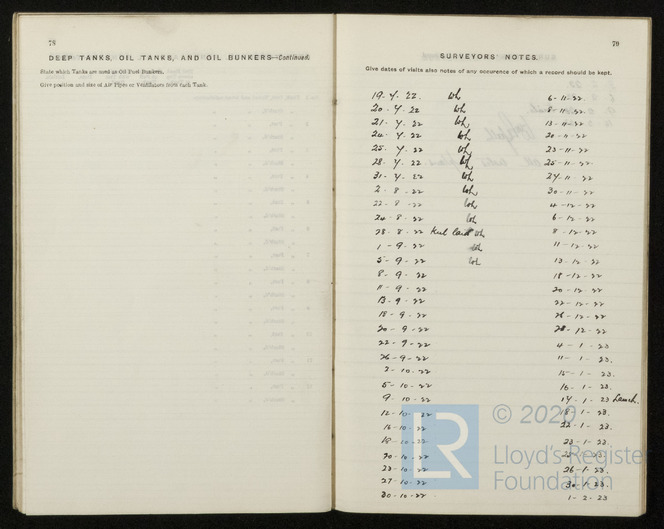 78
DEEP TANKS, OIL TANKS, AND OIL BUNKERS—Continued.
State which Tanks are used as Oil Fuel Bunkers.
Give position and size of Air Pipes or Ventilators from each Tank.
79
SURVEYORS' NOTES.
Give dates of visits also notes of any occurence of which a record should be kept.
19. 7. 22. Wh
20. 7. 22 Wh
21. 7. 22 Wh
24. 7. 22 Wh
25. 7. 22 Wh
28. 7. 22 Wh
31. 7. 22 Wh
2. 8. 22 Wh
22. 8. 22 Wh
24. 8. 22 Wh
28. 8. 22 Keel laid Wh
1. 9. 22 Wh
5. 9. 22 Wh
8. 9. 22
11. 9. 22
13. 9. 22
18. 9. 22
20. 9. 22
22. 9. 22
26. 9. 22
2. 10. 22
5. 10. 22
9. 10. 22
12. 10. 22
16. 10. 22
18. 10. 22
20. 10. 22
23. 10. 22
27. 10. 22
30. 10. 22
6. 11. 22
8. 11. 22
13. 11. 22
20. 11. 22
23. 11. 22
25. 11. 22
27. 11. 22
30. 11. 22
4. 12. 22
6. 12. 22
8. 12. 22
11. 12. 22
13. 12. 22
18. 12. 22
20. 12. 22
22. 12. 22
26. 12. 22
28. 12. 22
4. 1. 23
11. 1. 23.
15. 1. 23.
16. 1. 23.
17. 1. 23 Launch.
18. 1. 23.
22. 1. 23.
23. 1. 23.
26. 1. 23.
30. 1. 23.
1. 2. 23
© 2020
LR
Lloyd's Register
Foundation